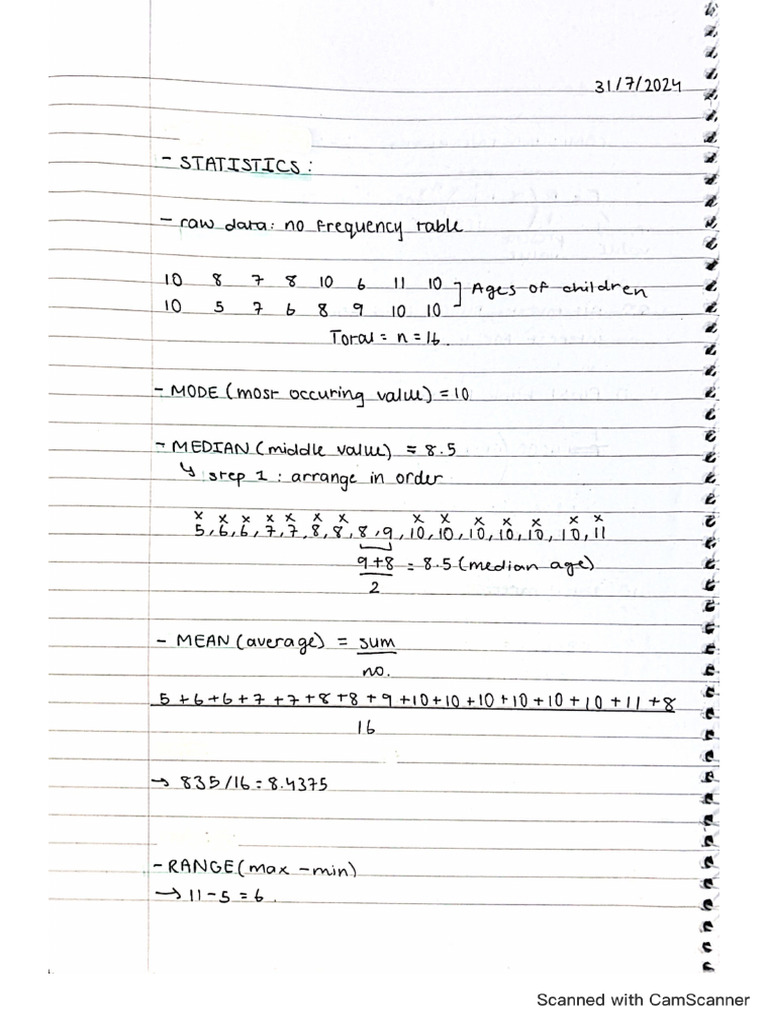 31/7/2024
- STATISTICS:
- raw data: no frequency table
10 8 7 8 10 6 11 10
10 5 7 6 8 9 10 10
] Ages of children
Total = n = 16.
- MODE (most occuring value) = 10
- MEDIAN (middle value) = 8.5
↳ step 1 : arrange in order
x x x x x x x x x x x x x x
5,6,6,7,7,8,8,8,9,10,10,10,10,10,10,11
9+8 = 8.5 (median age)
2
- MEAN (average) = sum
no.
5+6+6+7+7+8+8+9+10+10+10+10+10+10+11+8
16
→ 835/16 = 8.4375
- RANGE (max - min)
→ 11-5 = 6.
Scanned with CamScanner